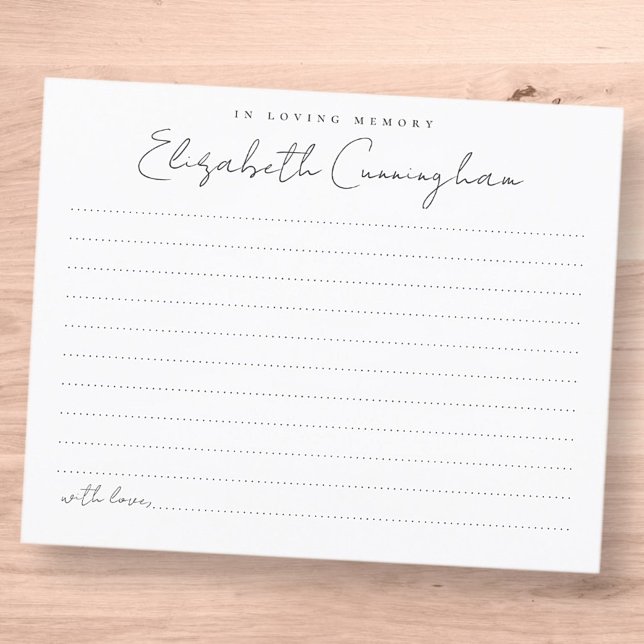 IN LOVING MEMORY
Elizabeth Cunningham
with love,